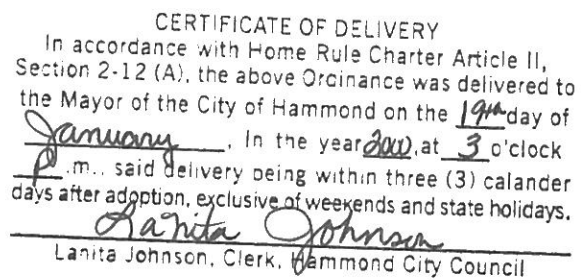 CERTIFICATE OF DELIVERY
In accordance with Home Rule Charter Article II,
Section 2-12 (A), the above Ordinance was delivered to
the Mayor of the City of Hammond on the 19th day of
January, In the year 2000, at 3 o'clock
p.m., said delivery being within three (3) calander
days after adoption, exclusive of weekends and state holidays.
Lanita Johnson
Lanita Johnson, Clerk, Hammond City Council